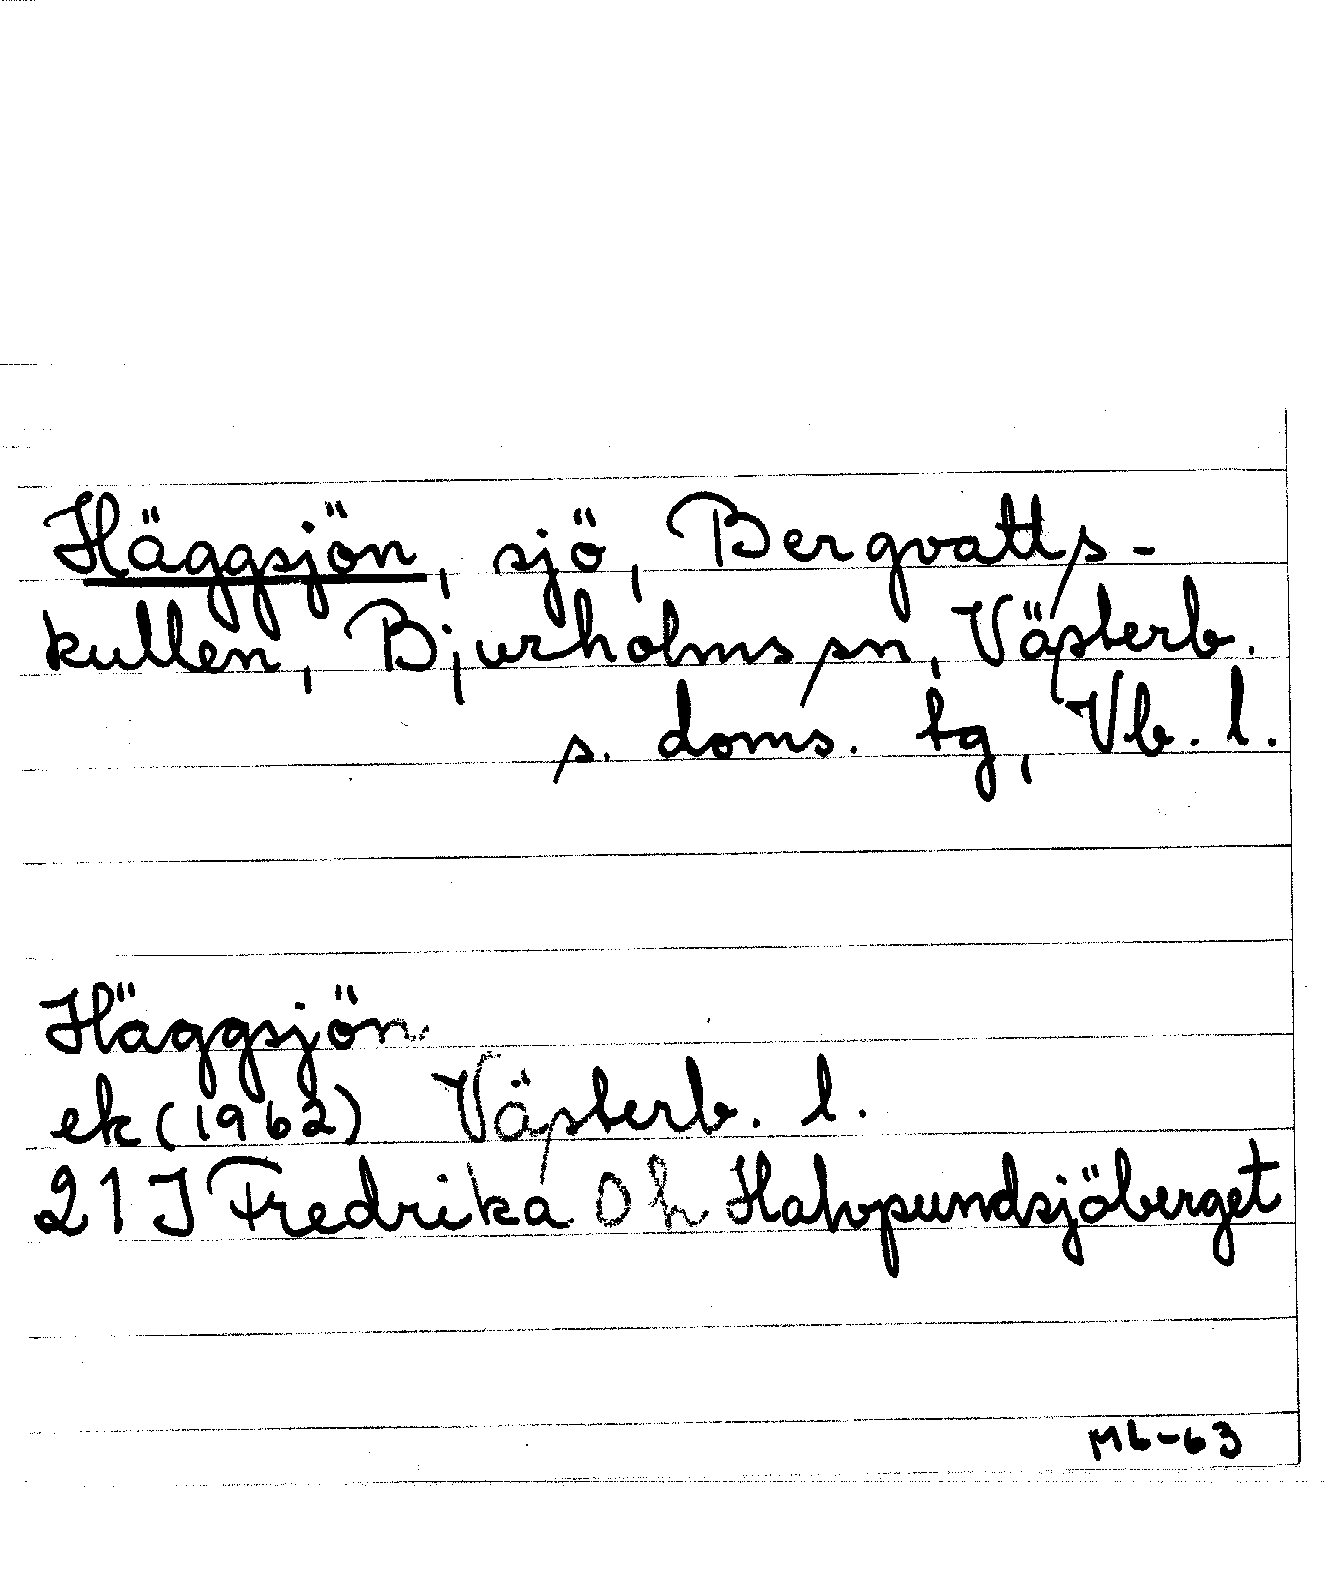 Häggsjön, sjö, Bergvatts-
kullen, Bjurholms sn, Västerb.
s. doms. tg, Vb. l.
Häggsjön
ek (1962) Västerb. l.
21 J Fredrika 0 h Halvpundsjöberget
ML-63